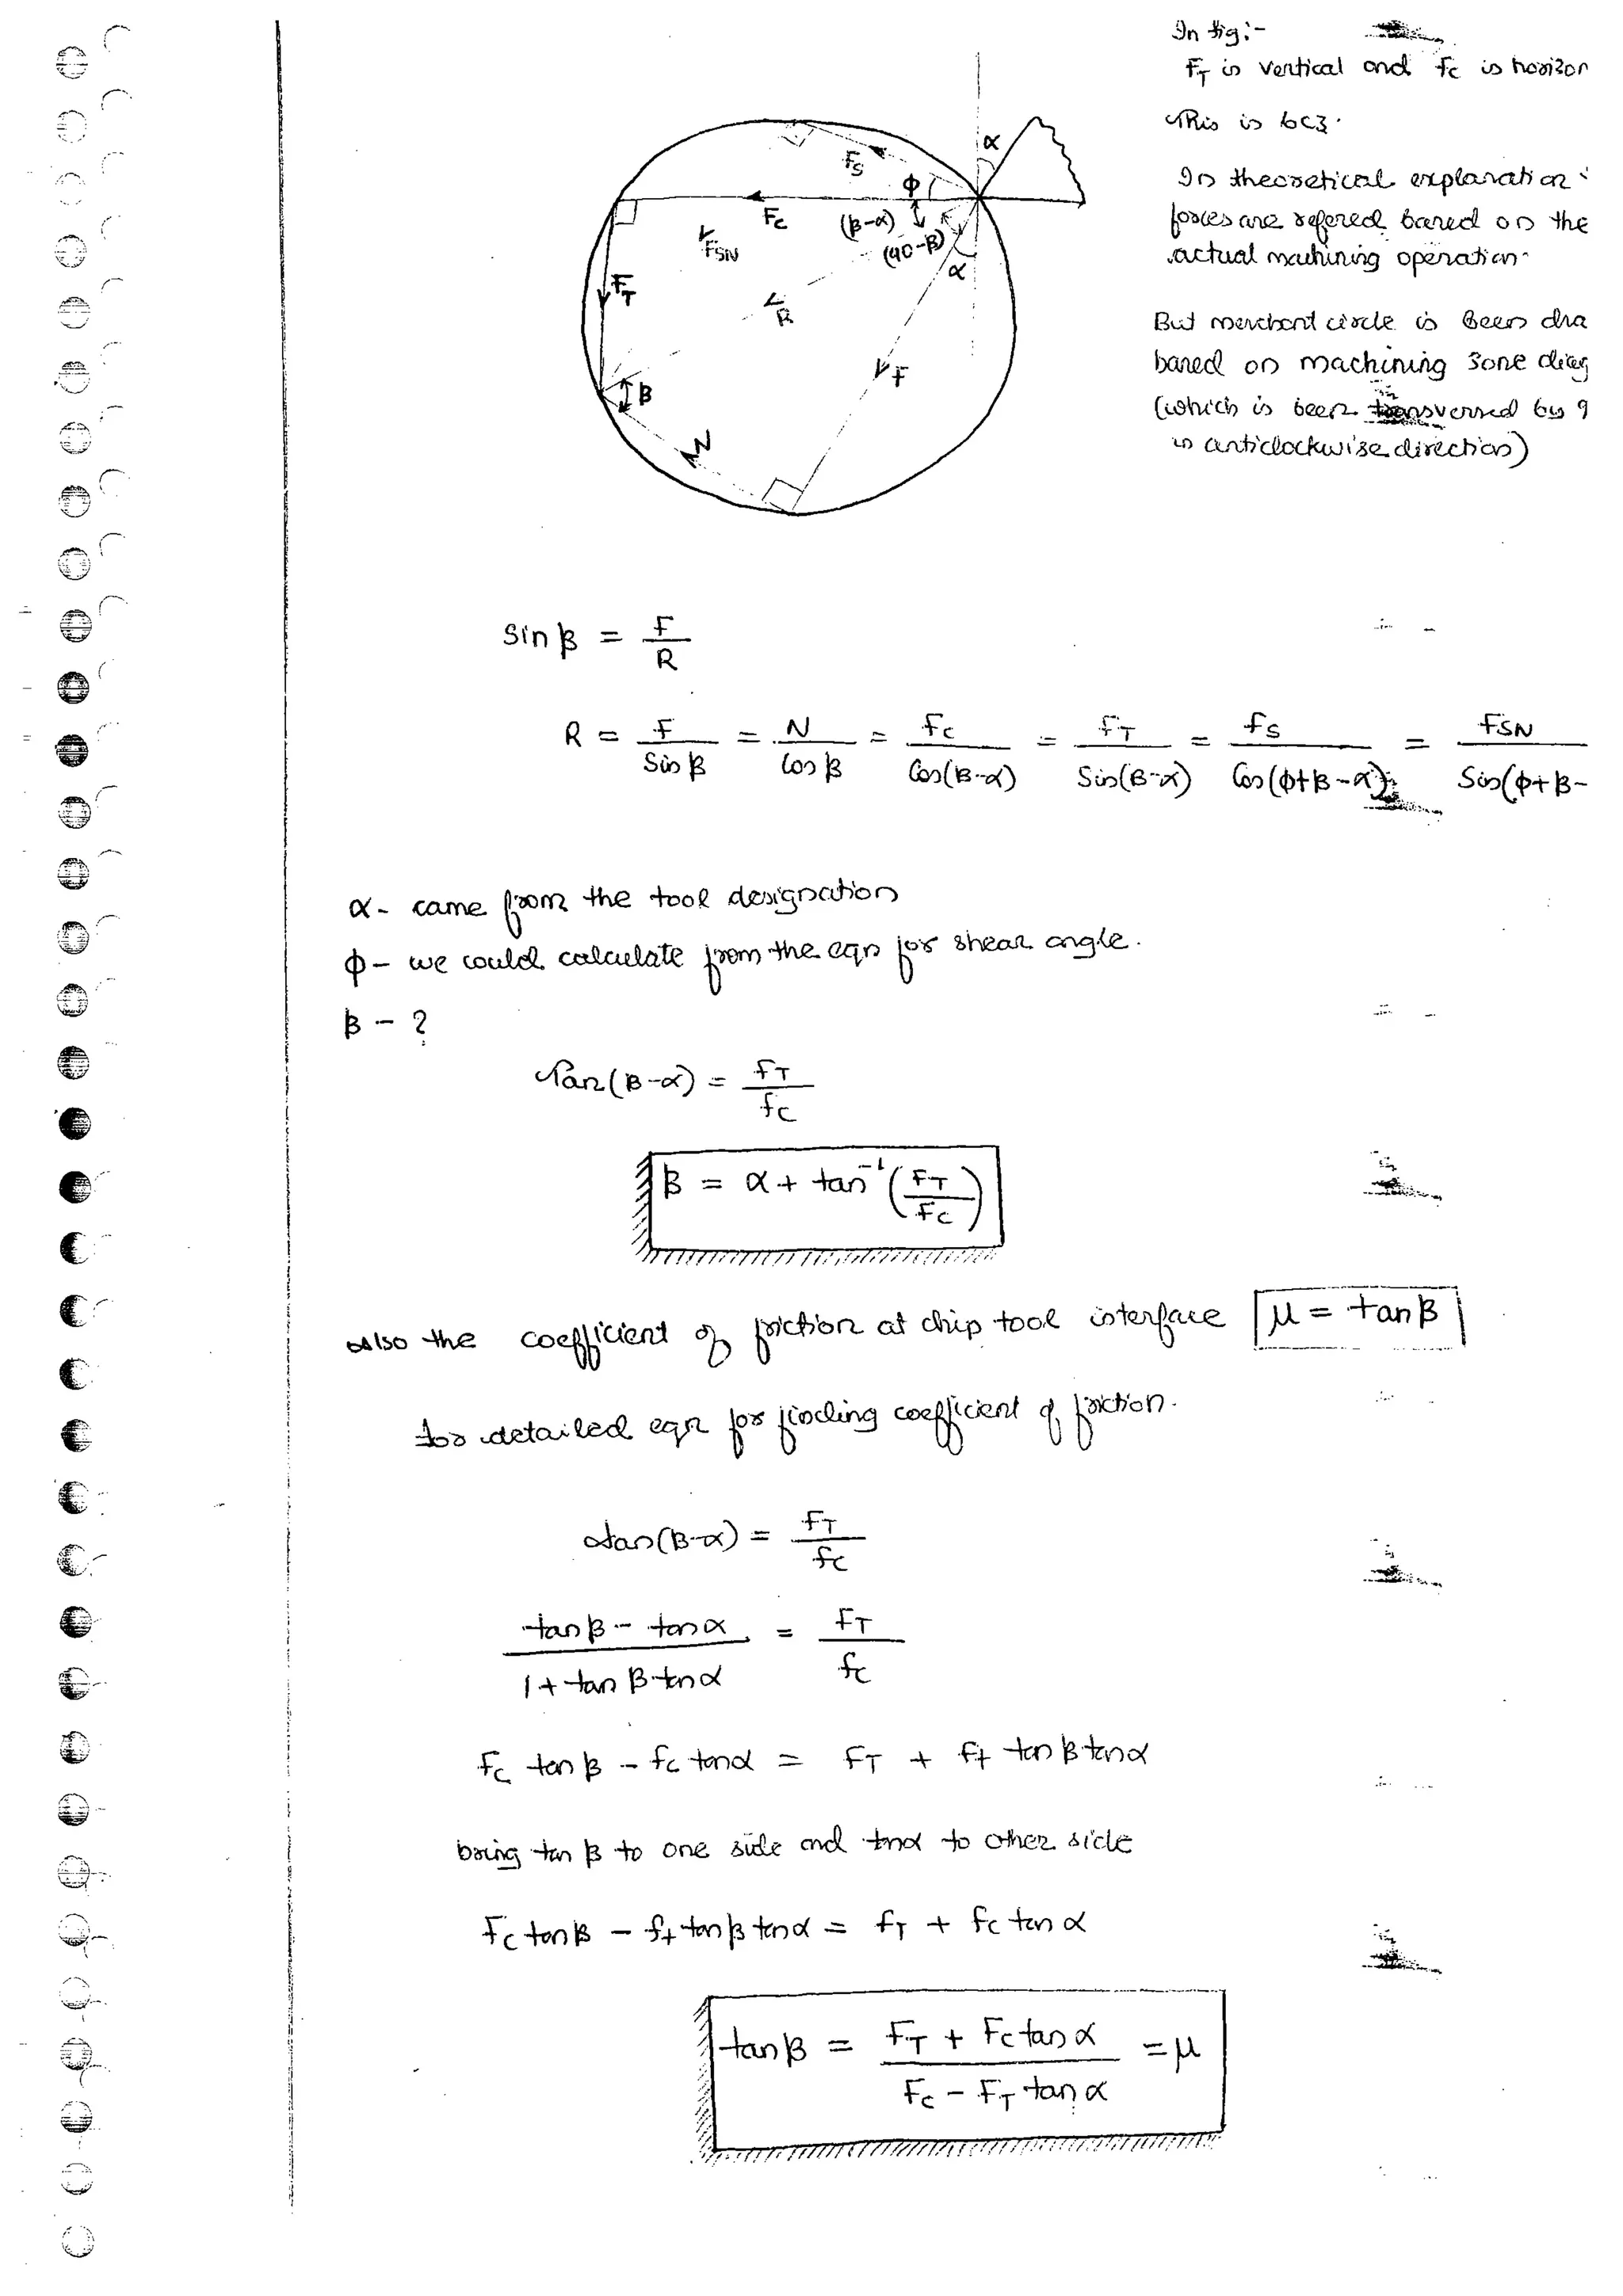 In fig:-
F_T is vertical and f_c is horizon
This is bcz.
In theoretical explanation
forces are refered based on the
actual machining operation.
But merchant circle is been dra
based on machining zone diag
(which is been transversed by 9
in anticlockwise direction)
α
F_S
φ
F_C
(β-α)
(90-β)
F_SN
α
F_T
R
F
β
N
Sin β = F/R
R = F/Sin β = N/Cos β = f_c/Cos(β-α) = f_T/Sin(β-α) = f_S/Cos(φ+β-α) = F_SN/Sin(φ+β-
α - came from the tool designation
φ - we could calculate from the eqn for shear angle.
β - ?
Tan(β-α) = f_T/f_C
β = α + tan⁻¹(F_T/F_C)
Also the coefficient of friction at chip tool interface μ = tanβ
for detailed eqn for finding coefficient of friction.
tan(β-α) = f_T/f_C
tanβ - tanα / 1 + tan β tan α = f_T/f_c
F_C tan β - f_c tanα = f_T + f_t tan β tan α
bring tan β to one side and tanα to other side
F_C tan β - f_t tan β tan α = f_T + f_c tan α
tanβ = F_T + F_C tan α / F_C - F_T tan α = μ